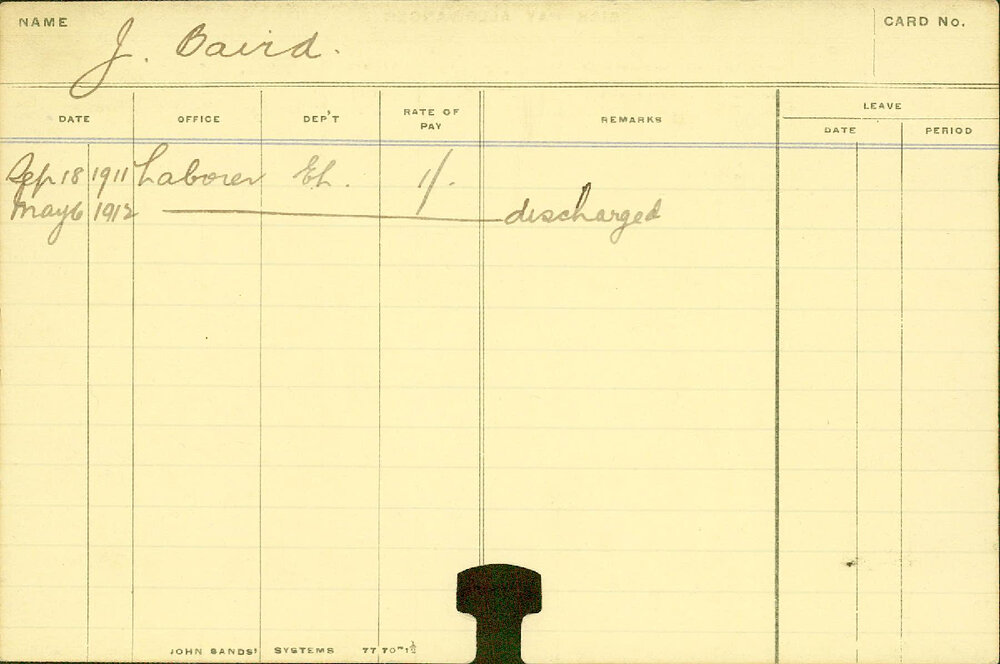 NAME J. Baird. CARD No.
LEAVE
DATE OFFICE DEP'T RATE OF PAY REMARKS DATE PERIOD
Sep 18 1911 Laborer 1/-
May 6 1912 discharged
JOHN SANDS' SYSTEMS